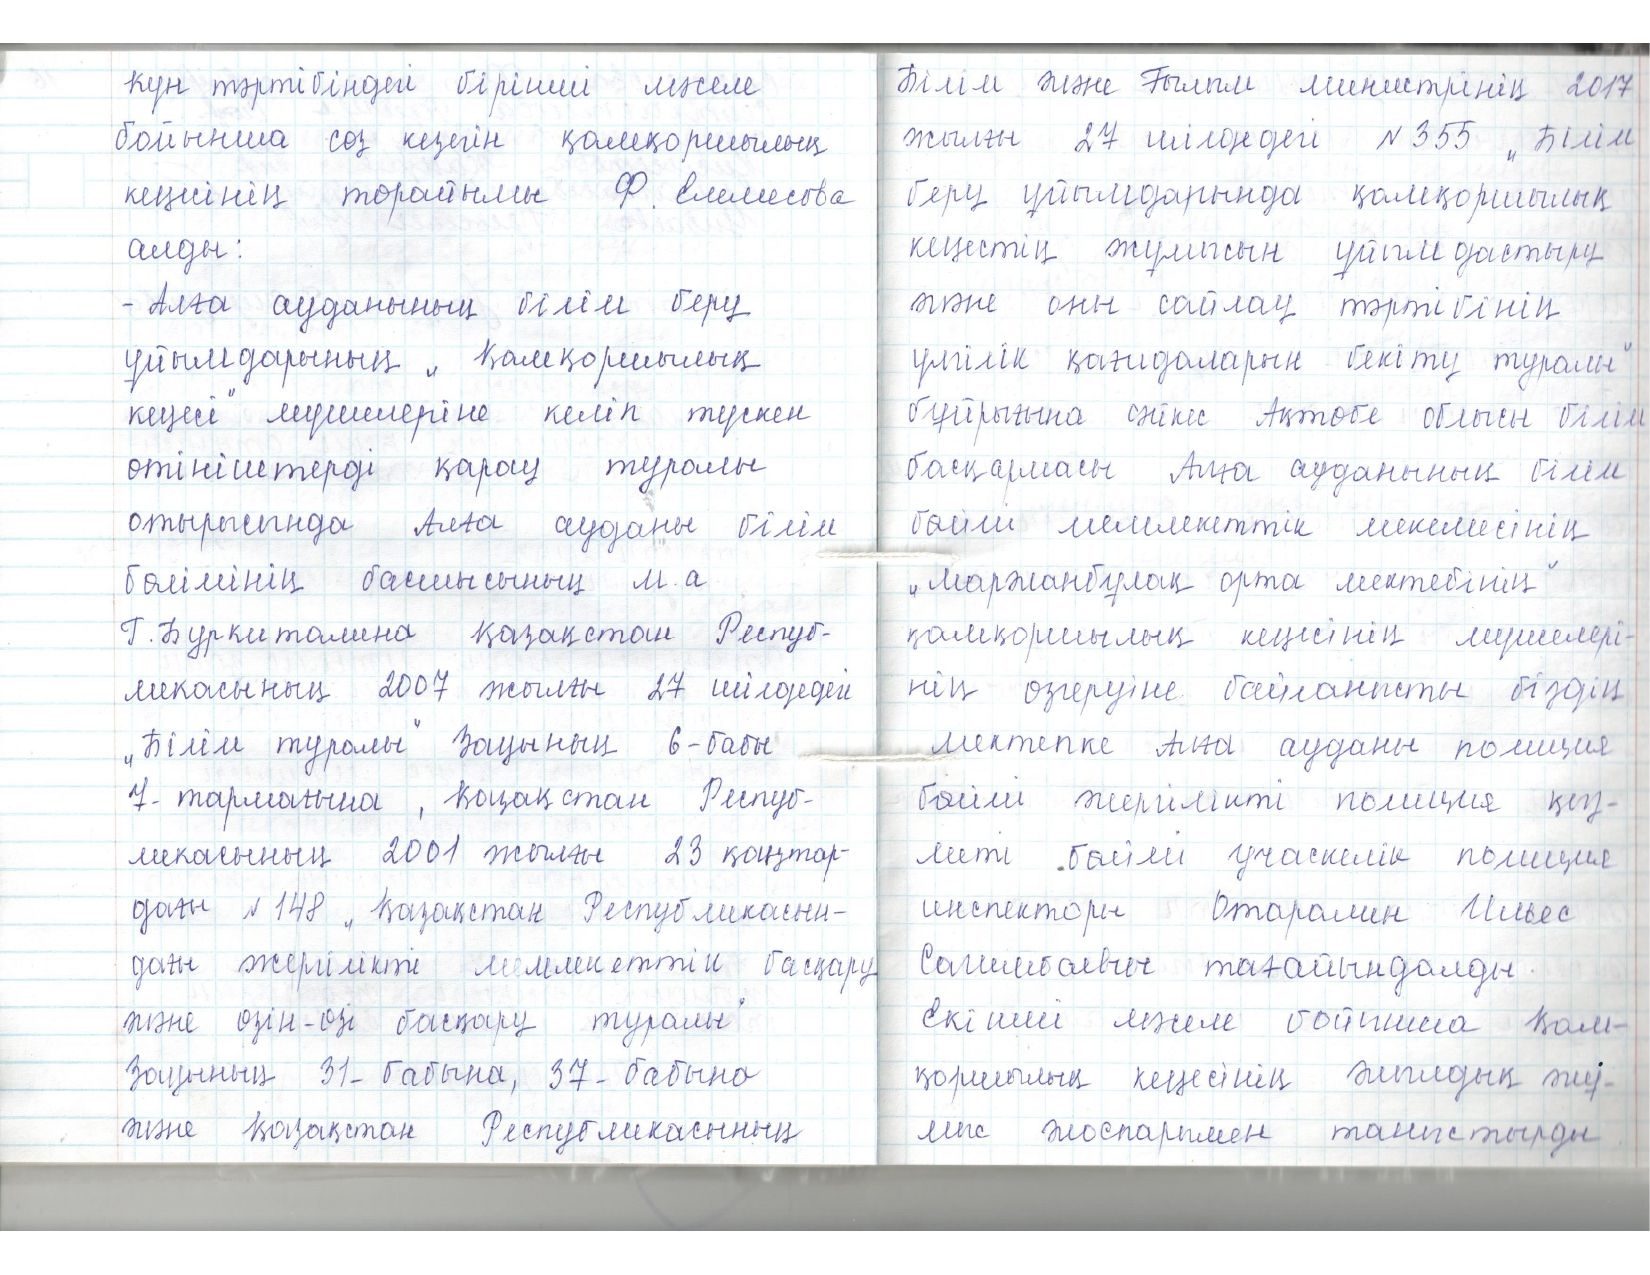 Күн тәртібіндегі бірінші мәселе
бойынша сөз кезегін қамқоршылық
кеңесінің төрайымы Ф. Елемесова
алды:
- Алға ауданының білім беру
ұйымдарының „Қамқоршылық
кеңесі" мүшелеріне келіп түскен
өтініштерді қарау туралы
отырысында Алға ауданы білім
бөлімінің басшысының м.а
Г.Буркиталина Қазақстан Респуб-
ликасының 2007 жылғы 27 шілдедегі
„Білім туралы" Заңының 6-бабы
7-тармағына, Қазақстан Респуб-
ликасының 2001 жылғы 23 қаңтар-
дағы №148 „Қазақстан Республикасын-
дағы жергілікті мемлекеттік басқару
және өзін-өзі басқару туралы"
Заңының 31-бабына, 37-бабына
және Қазақстан Республикасының
Білім және Ғылым министрінің 2017
жылғы 27 шілдедегі №355 „Білім
беру ұйымдарында қамқоршылық
кеңестің жұмысын ұйымдастыру
және оны сайлау тәртібінің
үлгілік қағидаларын бекіту туралы"
бұйрығына сәйкес Ақтөбе облысы білім
басқармасы Алға ауданының білім
бөлімі мемлекеттік мекемесінің
„Маржанбұлақ орта мектебінің"
қамқоршылық кеңесінің мүшелері-
нің өзгеруіне байланысты біздің
мектепке Алға ауданы полиция
бөлімі жергілікті полиция қыз-
меті бөлімі учаскелік полиция
инспекторы Отаралин Ильес
Сагимбаевич тағайындалды.
Екінші мәселе бойынша Қам-
қоршылық кеңесінің жылдық жұ-
мыс жоспарымен таныстырды